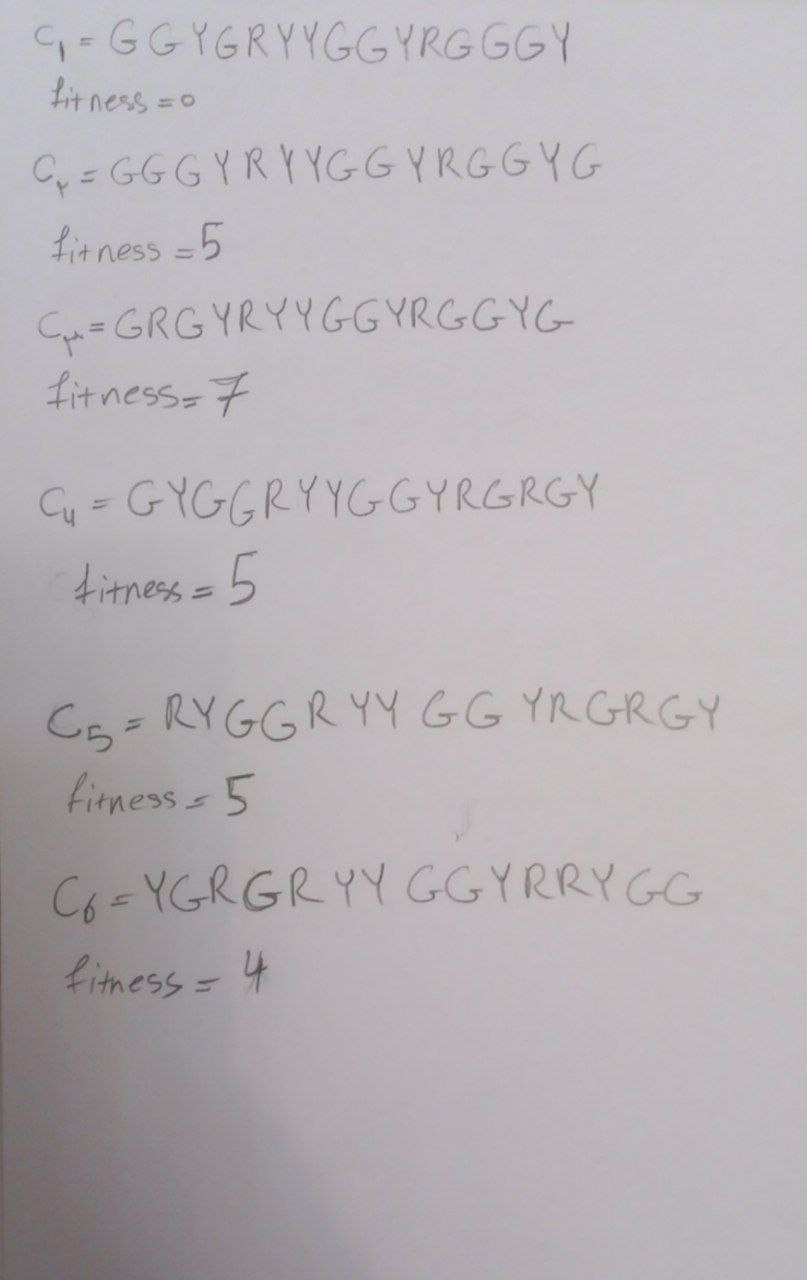 C۱ = GGYGRYYGGYRGGGY
fitness = 0
C۲ = GGGYRYYGGYRGGYG
fitness = 5
C۳ = GRGYRYYGGYRGGYG
fitness = 7
C4 = GYGGRYYGGYRGRGY
fitness = 5
C5 = RYGGRYY GG YRGRGY
fitness = 5
C6 = YGRGRYY GGYRRYGG
fitness = 4